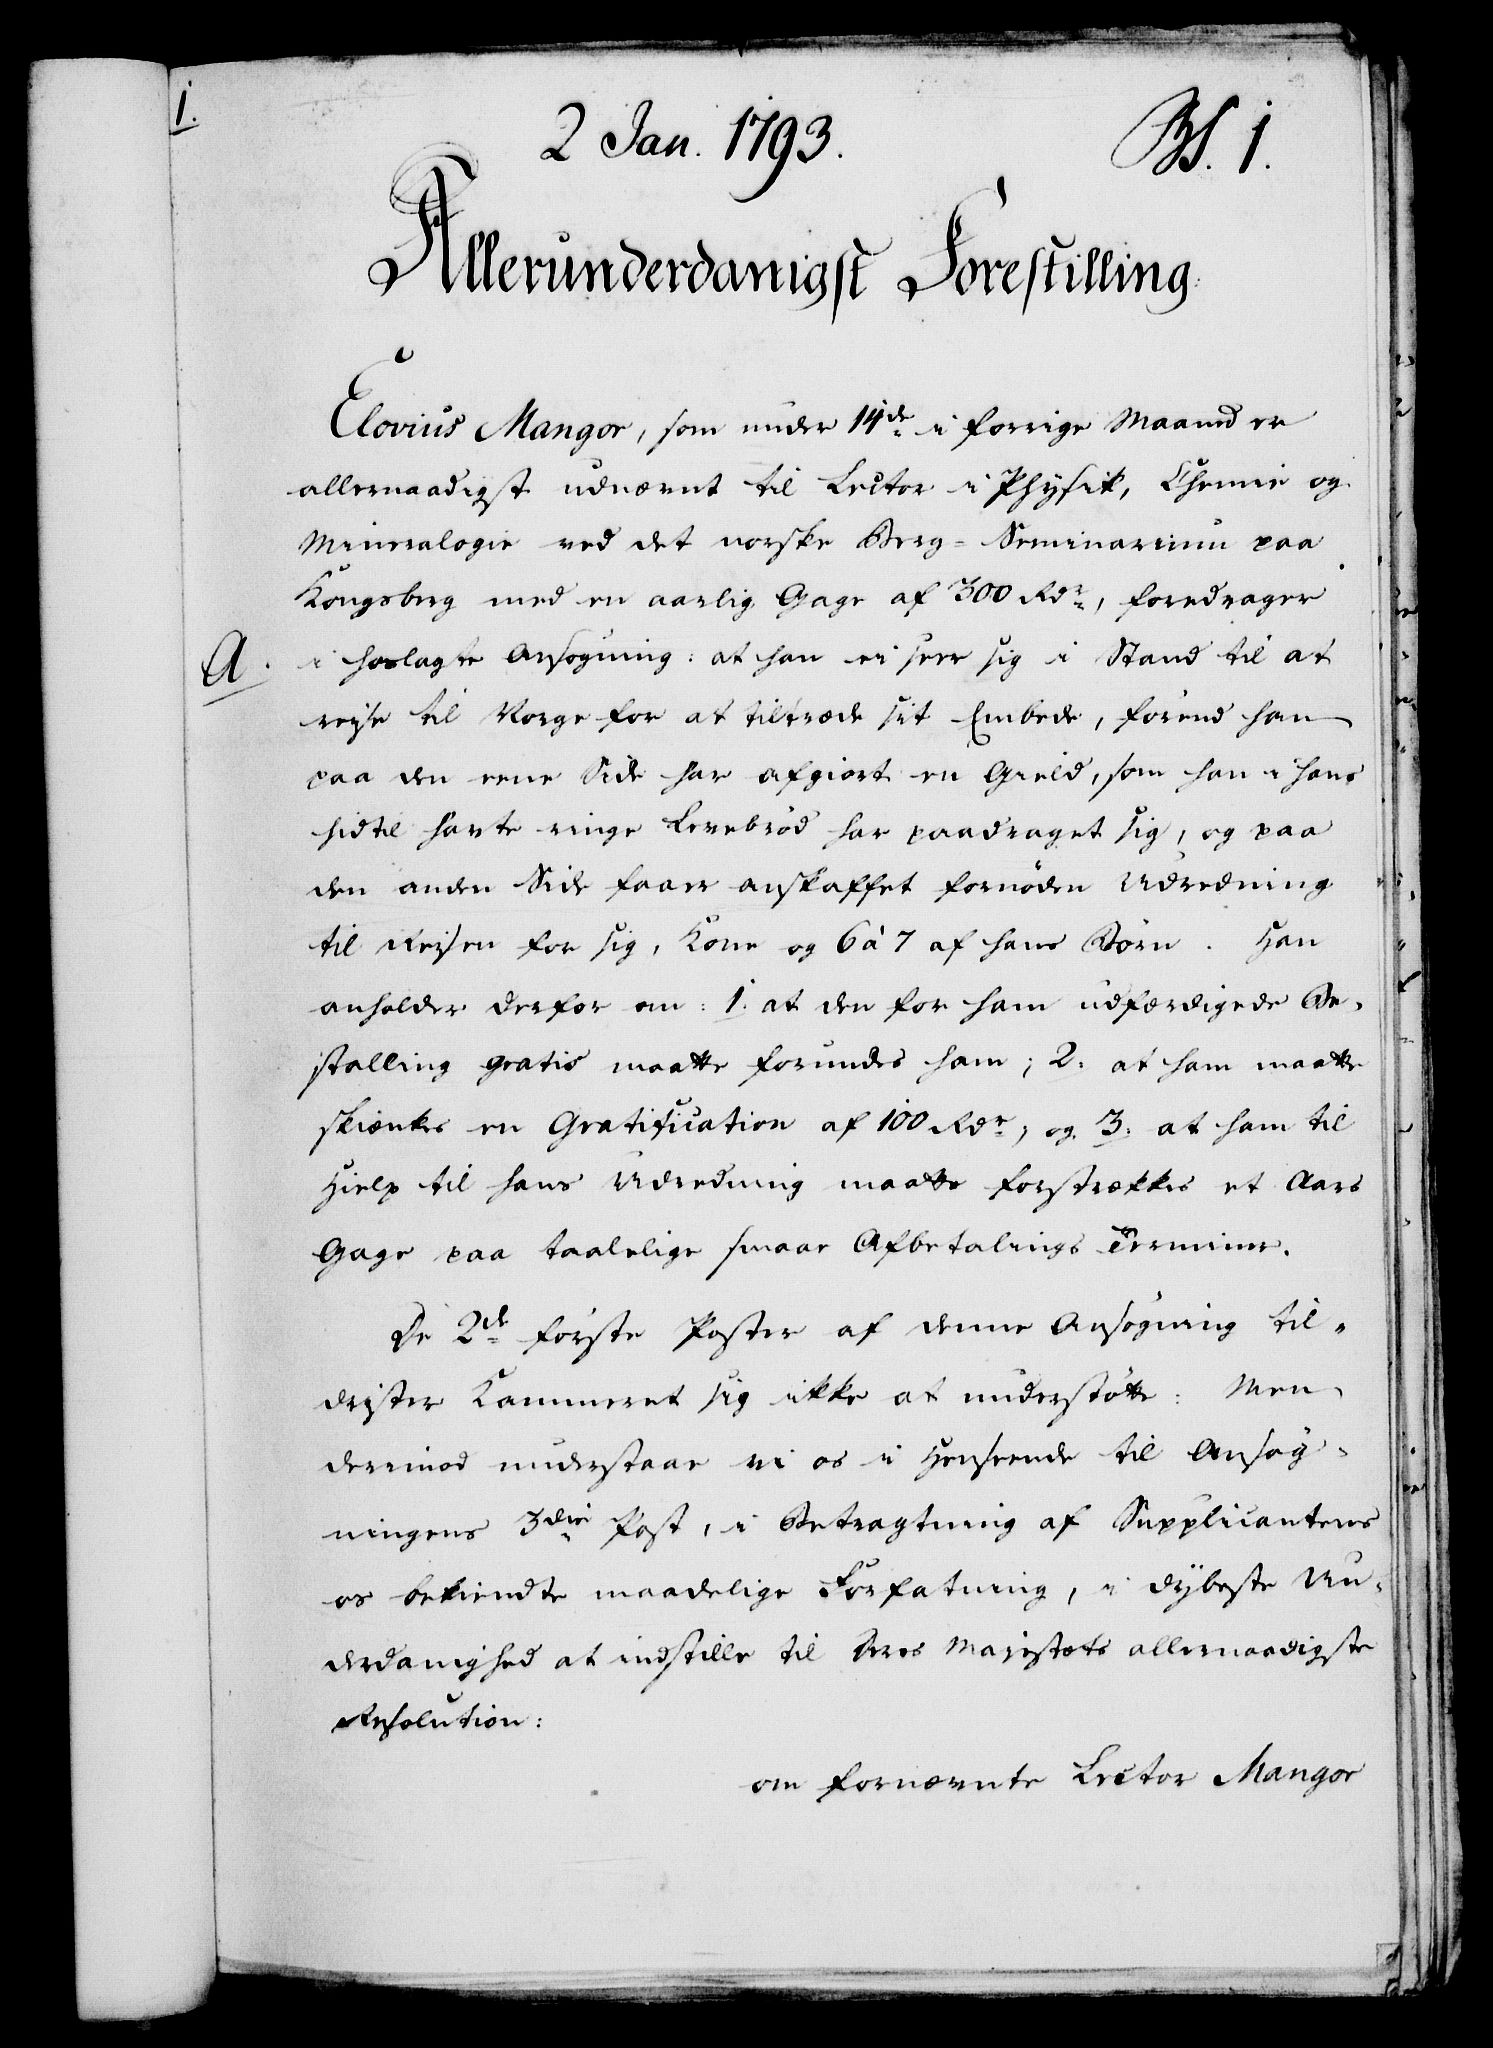 1.
2 Jan. 1793.
Bf. 1.
Allerunderdanigst Forestilling.
Elovius Mangor, som under 14de i forrige Maaned er
allernaadigst udnævnt til Lector i Physik, Chemie og
Mineralogie ved det norske Berg-Seminarium paa
Kongsberg med en aarlig Gage af 300 Rdr, foredrager
A.
i hoslagte Ansøgning: at han ei seer sig i Stand til at
reise til Norge for at tiltræde sit Embede, forend han
paa den eene Side har afgiort en Gield, som han i hans
hidtil havte ringe Levebrød har paadraget sig, og paa
den anden Side faaer anskaffet fornöden Udredning
til Reisen for sig, Kone og 6 à 7 af hans Börn. Han
anholder derfor om: 1. at den for ham udfærdigede Be-
stalling gratis maatte forundes ham; 2. at ham maatte
skienkes en Gratification af 100 Rdr; og 3. at ham til
Hielp til hans Udredning maatte forstrækkes et Aars
Gage paa taalelige smaae Afbetalings Terminer.
De 2de förste Poster af denne Ansögning til-
drister Kammeret sig ikke at understötte: Men
derimod understaae vi os i Henseende til Ansøg-
ningens 3die Post, i Betragtning af Supplicantens
os bekiendte maadelige Forfatning, i dybeste Un-
derdanighed at indstille til Deres Majestæts allernaadigste
Resolution:
om fornævnte Lector Mangor